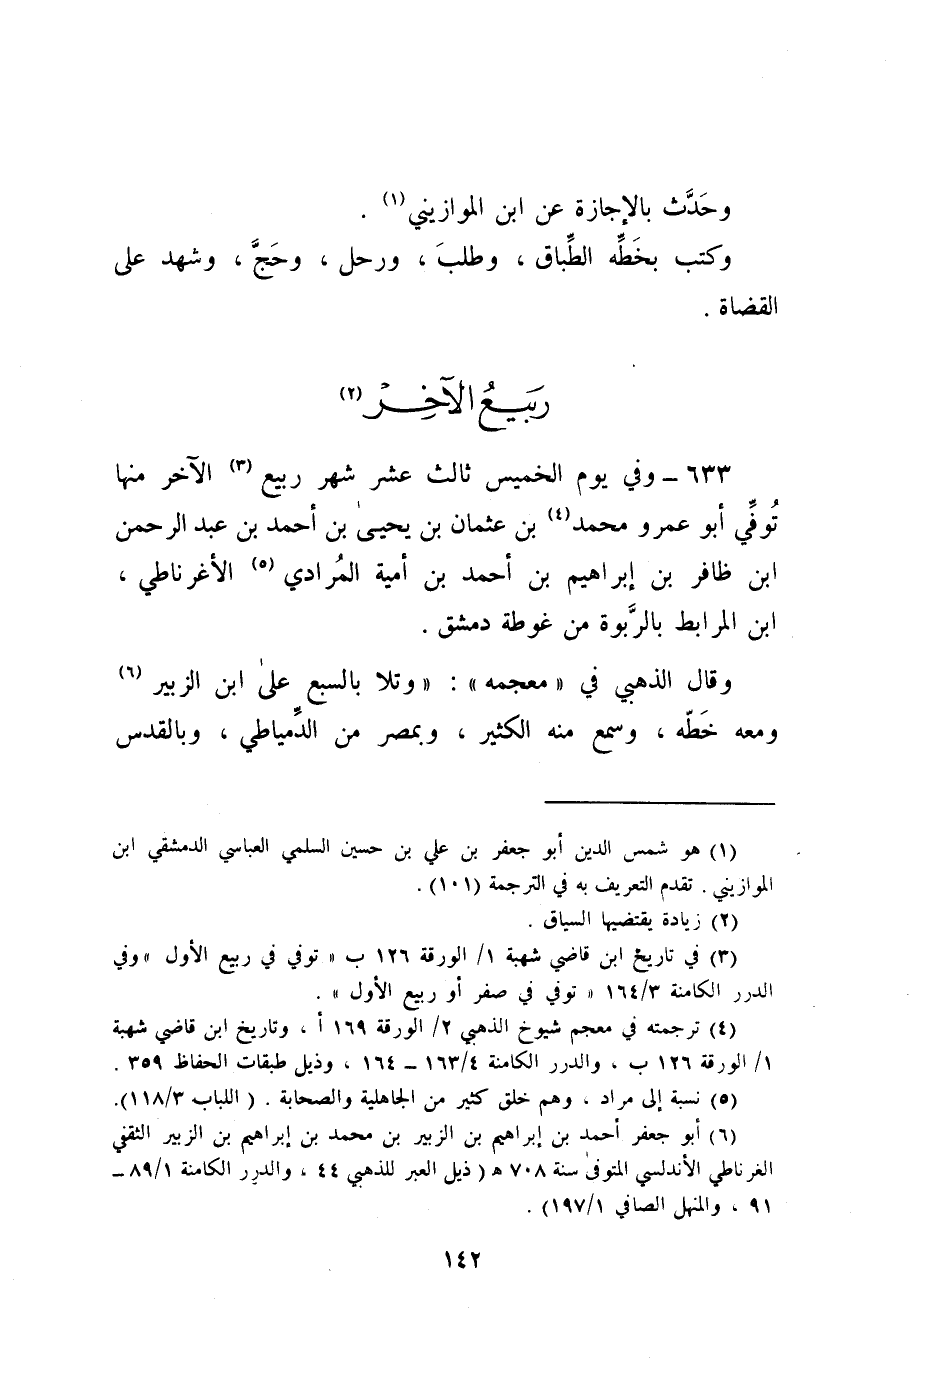 وحَدَّث بالإجازة عن ابن الموازيني(١) .
وكتب بخَطِّه الطِّباق ، وطلبَ ، ورحل ، وحَجَّ ، وشهد على
القضاة .
رَبيعُ الآخِر (٢)
٦٣٣ - وفي يوم الخميس ثالث عشر شهر ربيع (٣) الآخر منها
تُوفِّي أبو عمرو محمد(٤) بن عثمان بن يحيىٰ بن أحمد بن عبد الرحمن
ابن ظافر بن إبراهيم بن أحمد بن أمية المُرادي (٥) الأغرناطي ،
ابن المرابط بالرَّبوة من غوطة دمشق .
وقال الذهبي في « معجمه » : « وتلا بالسبع علىٰ ابن الزبير (٦)
ومعه خَطّه ، وسمع منه الكثير ، وبمصر من الدِّمياطي ، وبالقدس
(١) هو شمس الدين أبو جعفر بن علي بن حسين السلمي العباسي الدمشقي ابن
الموازيني . تقدم التعريف به في الترجمة (١٠١) .
(٢) زيادة يقتضيها السياق .
(٣) في تاريخ ابن قاضي شهبة ١/ الورقة ١٢٦ ب « توفي في ربيع الأول » وفي
الدرر الكامنة ١٦٤/٣ « توفي في صفر أو ربيع الأول » .
(٤) ترجمته في معجم شيوخ الذهبي ٢/ الورقة ١٦٩ أ ، وتاريخ ابن قاضي شهبة
١/ الورقة ١٢٦ ب ، والدرر الكامنة ١٦٣/٤ - ١٦٤ ، وذيل طبقات الحفاظ ٣٥٩ .
(٥) نسبة إلى مراد ، وهم خلق كثير من الجاهلية والصحابة . ( اللباب ١١٨/٣).
(٦) أبو جعفر أحمد بن إبراهيم بن الزبير بن محمد بن إبراهيم بن الزبير الثقفي
الغرناطي الأندلسي المتوفىٰ سنة ٧٠٨ ه ( ذيل العبر للذهبي ٤٤ ، والدرر الكامنة ٨٩/١ -
٩١ ، والمنهل الصافي ١٩٧/١) .
١٤٢